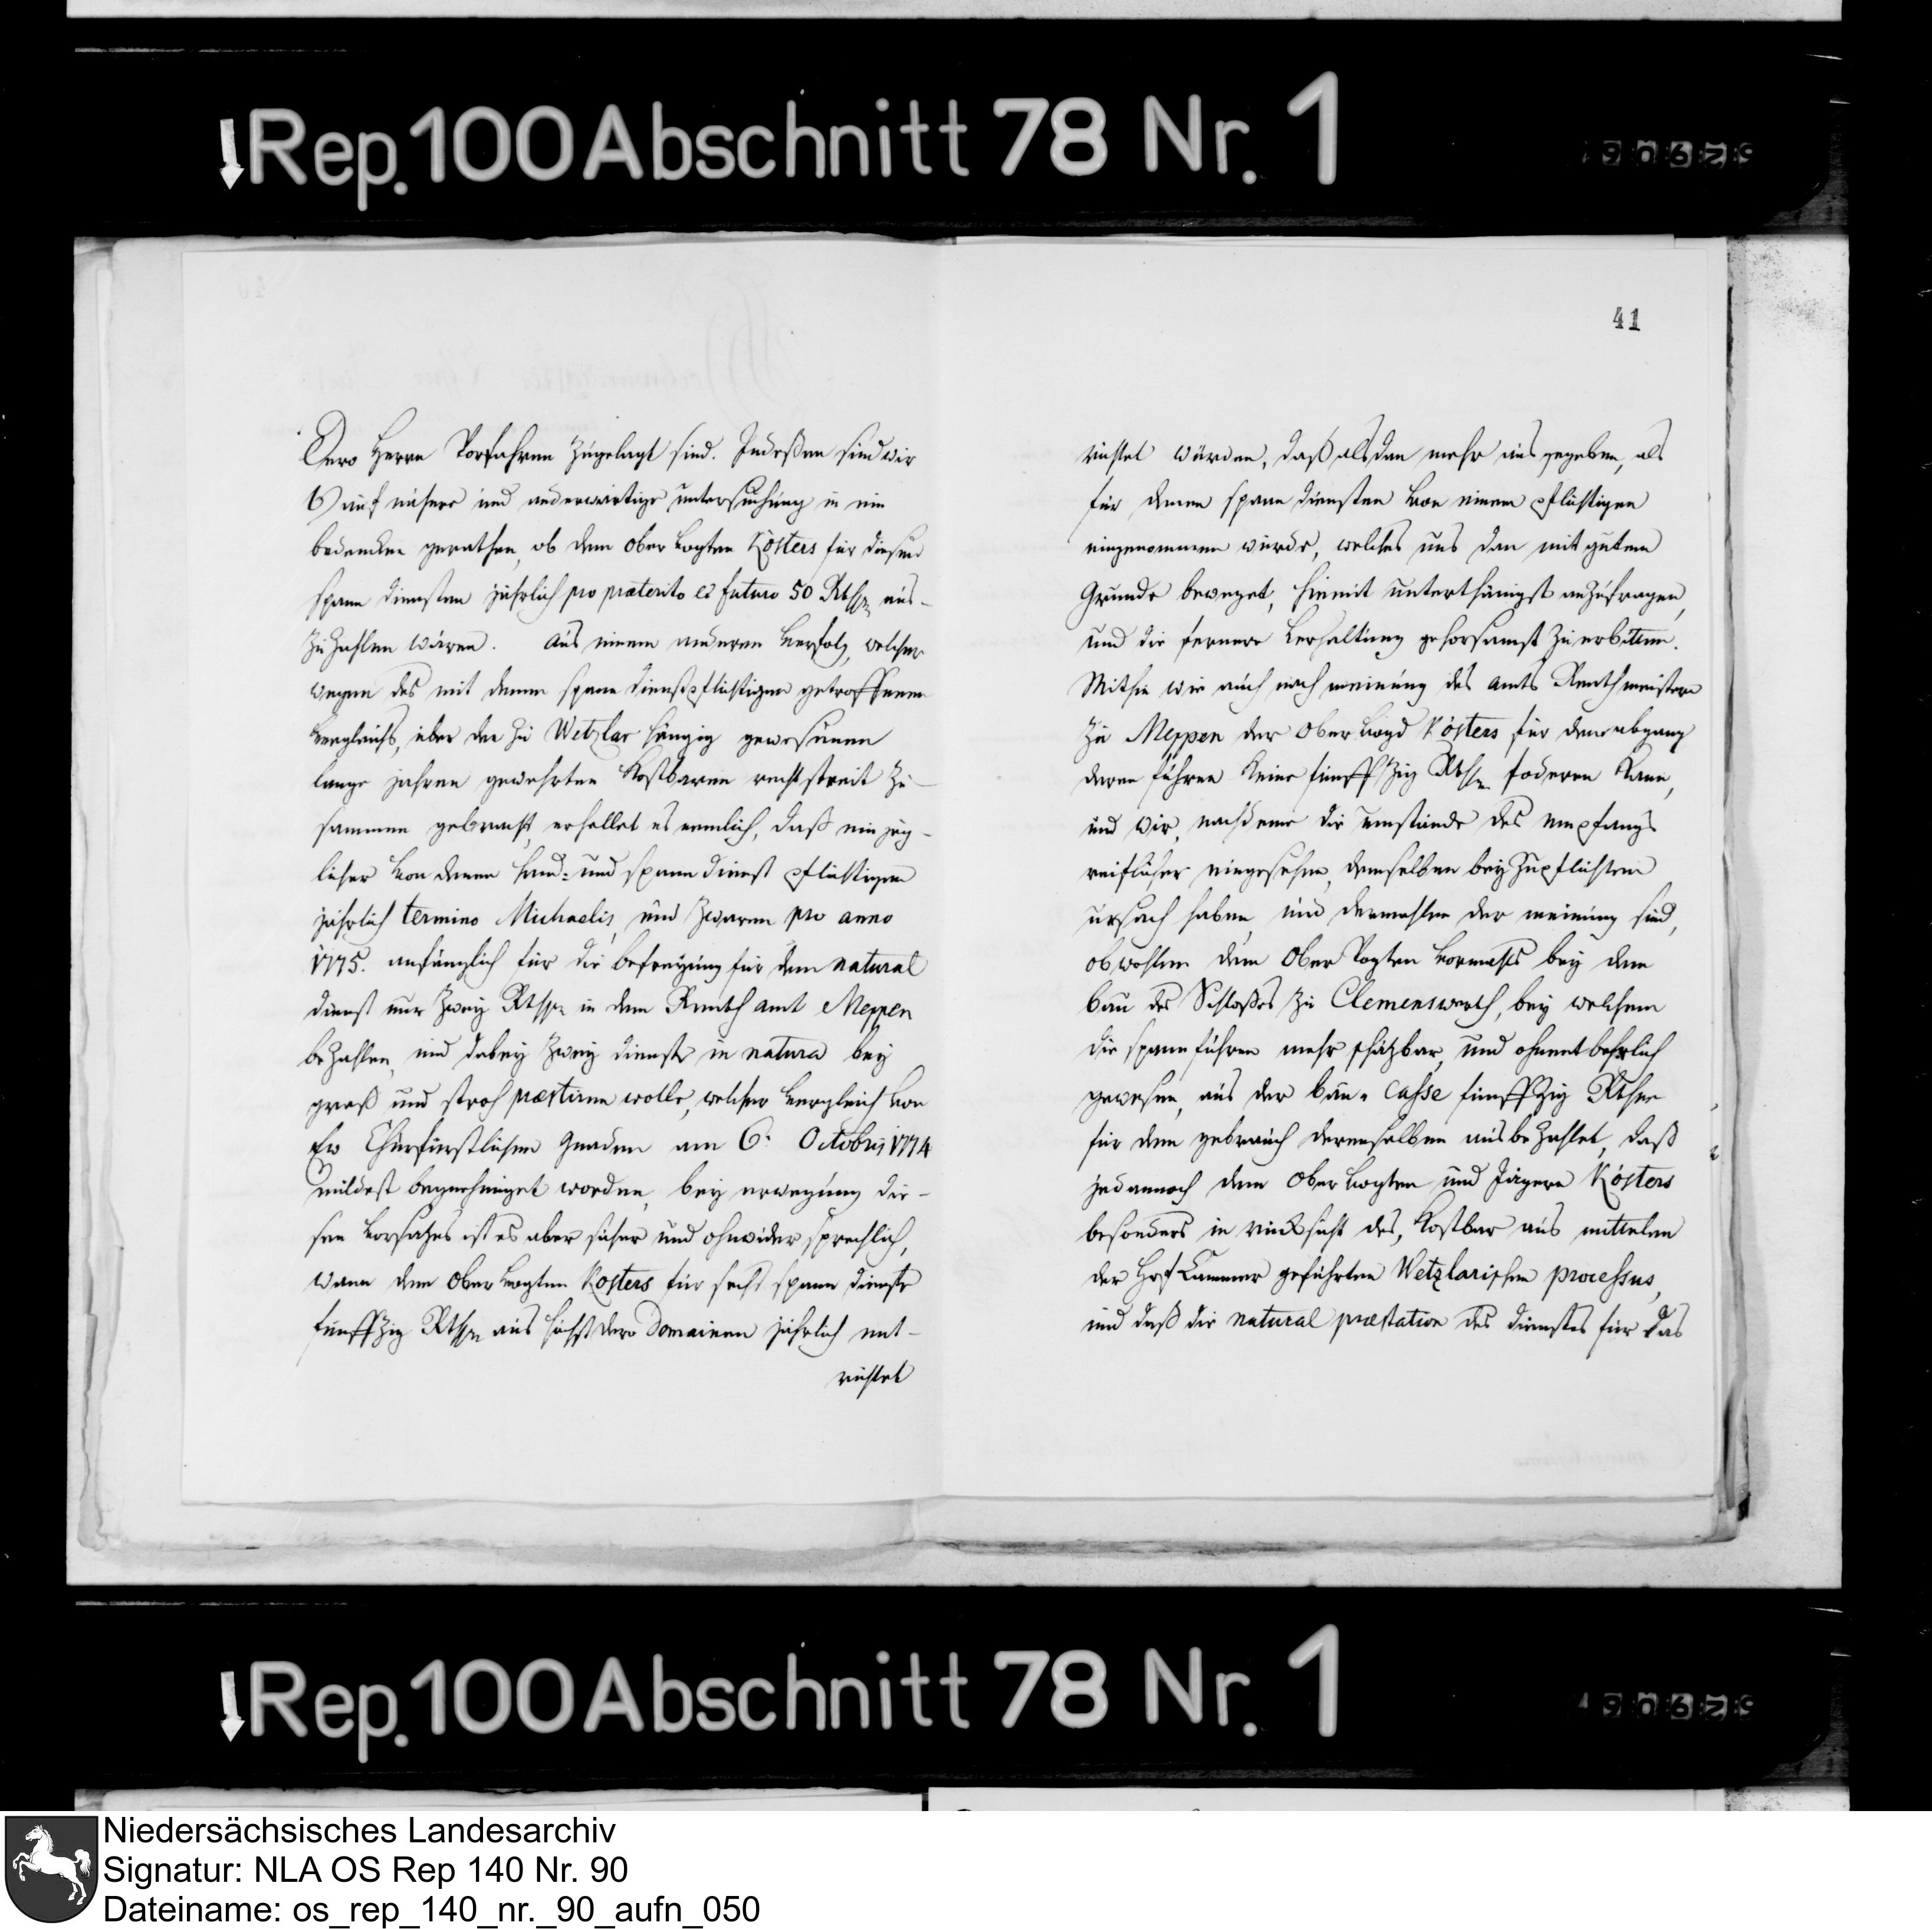 Rep. 100 Abschnitt 78 Nr. 1
41
Dero Herrn Vorfahren zugelagt sind. Indeßen sind wir
6) auf nähere und anderwärtige untersuchung in ein
bedencken gerathen, ob dem Ober Vogten Kösters für diesen
spann diensten jährlich pro præterito et futuro 50 Rthlr aus-
zuzahlen wären. Aus einem anderen verfolg, welcher
wegen des mit denen spann dienstpflichtigen getroffenen
vergleichs, über den zu Wetzlar hängig gewesenen
lange jahren gewehrten Kostbaren rechtstreit zu-
sammen gebracht, erhellet es nemlich, daß ein jeg-
licher von denen hand- und spann dienst pflichtigen
jährlich termino Michaelis, und zwaren pro anno
1775. anfänglich für die befreyung für dem natural
dienst nur zwey Rthlr in dem Renth amt Meppen
bezahlen, und dabey zwey dienste in natura bey
graß und stroh præstiren wolle, welcher vergleich von
Ew Churfürstlichen Gnaden am 6. Octobris 1774
mildest begnehmiget worden, bey erwegung die-
sen vorsatzes ist es aber sicher und ohnwidersprechlich,
wann dem Ober Vogten Kosters für sechs spann dienste
fünffzig Rthlr aus höchst dero Domainen jährlich ent-
richtet
richtet würden, daß alsdan mehr ausgegeben, als
für denen spann diensten von einem pflichtigen
eingenommen würde, welches uns dan mit gutem
Grunde beweget, hiemit unterthänigst anzufragen,
und die fernere verhaltung gehorsamst zu erbitten.
Mithin wie auch nach meinung des amts Renthmeistern
zu Meppen der Ober Vogd Kösters für den abgang
deren führen keine fünffzig Rthlr foderen kann,
und wir, nachdeme die umstände des empfangs
reiflicher eingesehen, demselben beyzupflichten
ursach haben, und dermahlen der meinung sind,
obwohlen dem Ober Vogten vormahls bey dem
bau des Schloßes zu Clemenswerth, bey welchem
die spannführen mehr schätzbar, und ohnentbehrlich
gewesen, aus der bau-casse fünffzig Rthlr
für dem gebrauch derenselben ausbezahlet, daß
jedannoch dem Ober Vogten und Jägern Kösters
besonders in rücksicht des, kostbar aus mittelen
der Hof Cammer geführten Wetzlarischen processus,
und daß die natural præstation des dienstes für das
Rep. 100 Abschnitt 78 Nr. 1
Niedersächsisches Landesarchiv
Signatur: NLA OS Rep 140 Nr. 90
Dateiname: os_rep_140_nr._90_aufn_050